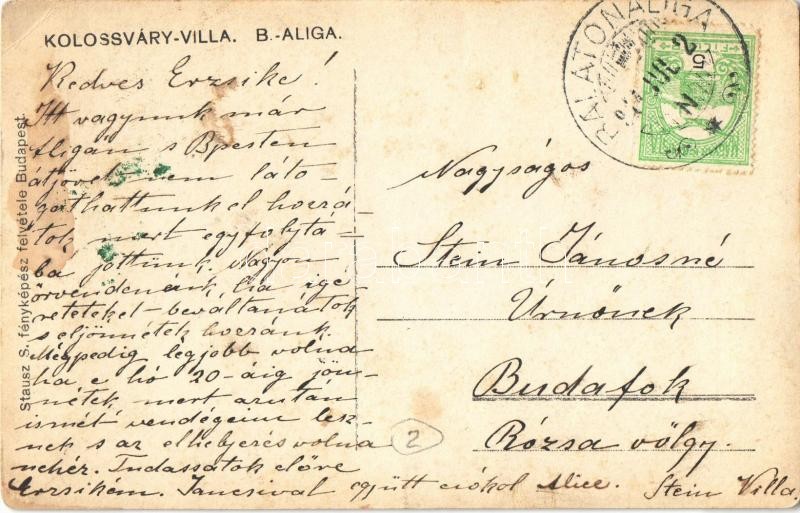 KOLOSSVÁRY-VILLA. B.-ALIGA.
Kedves Erzsike!
Itt vagyunk már
Aligán s Bpesten
átjövet nem láto-
gathattunk el hozzá-
tok mert egyfolytá-
ba jöttünk. Nagyon
örvendenénk ha igé-
reteteket beváltanátok
s eljönnétek hozzánk.
Mégpedig legjobb volna
ha e hó 20-áig jön-
nétek mert azután
ismét vendégeim lesz-
nek s az elhelyezés volna
nehéz. Tudassátok előre
Erzsikém. Jancsival együtt csókol Alice.
Stausz S. fényképész felvétele Budapest.
BALATONALIGA
5
Nagyságos
Stein Jánosné
Úrnőnek
Budafok
Rózsa völgy.
Stein Villa.
2